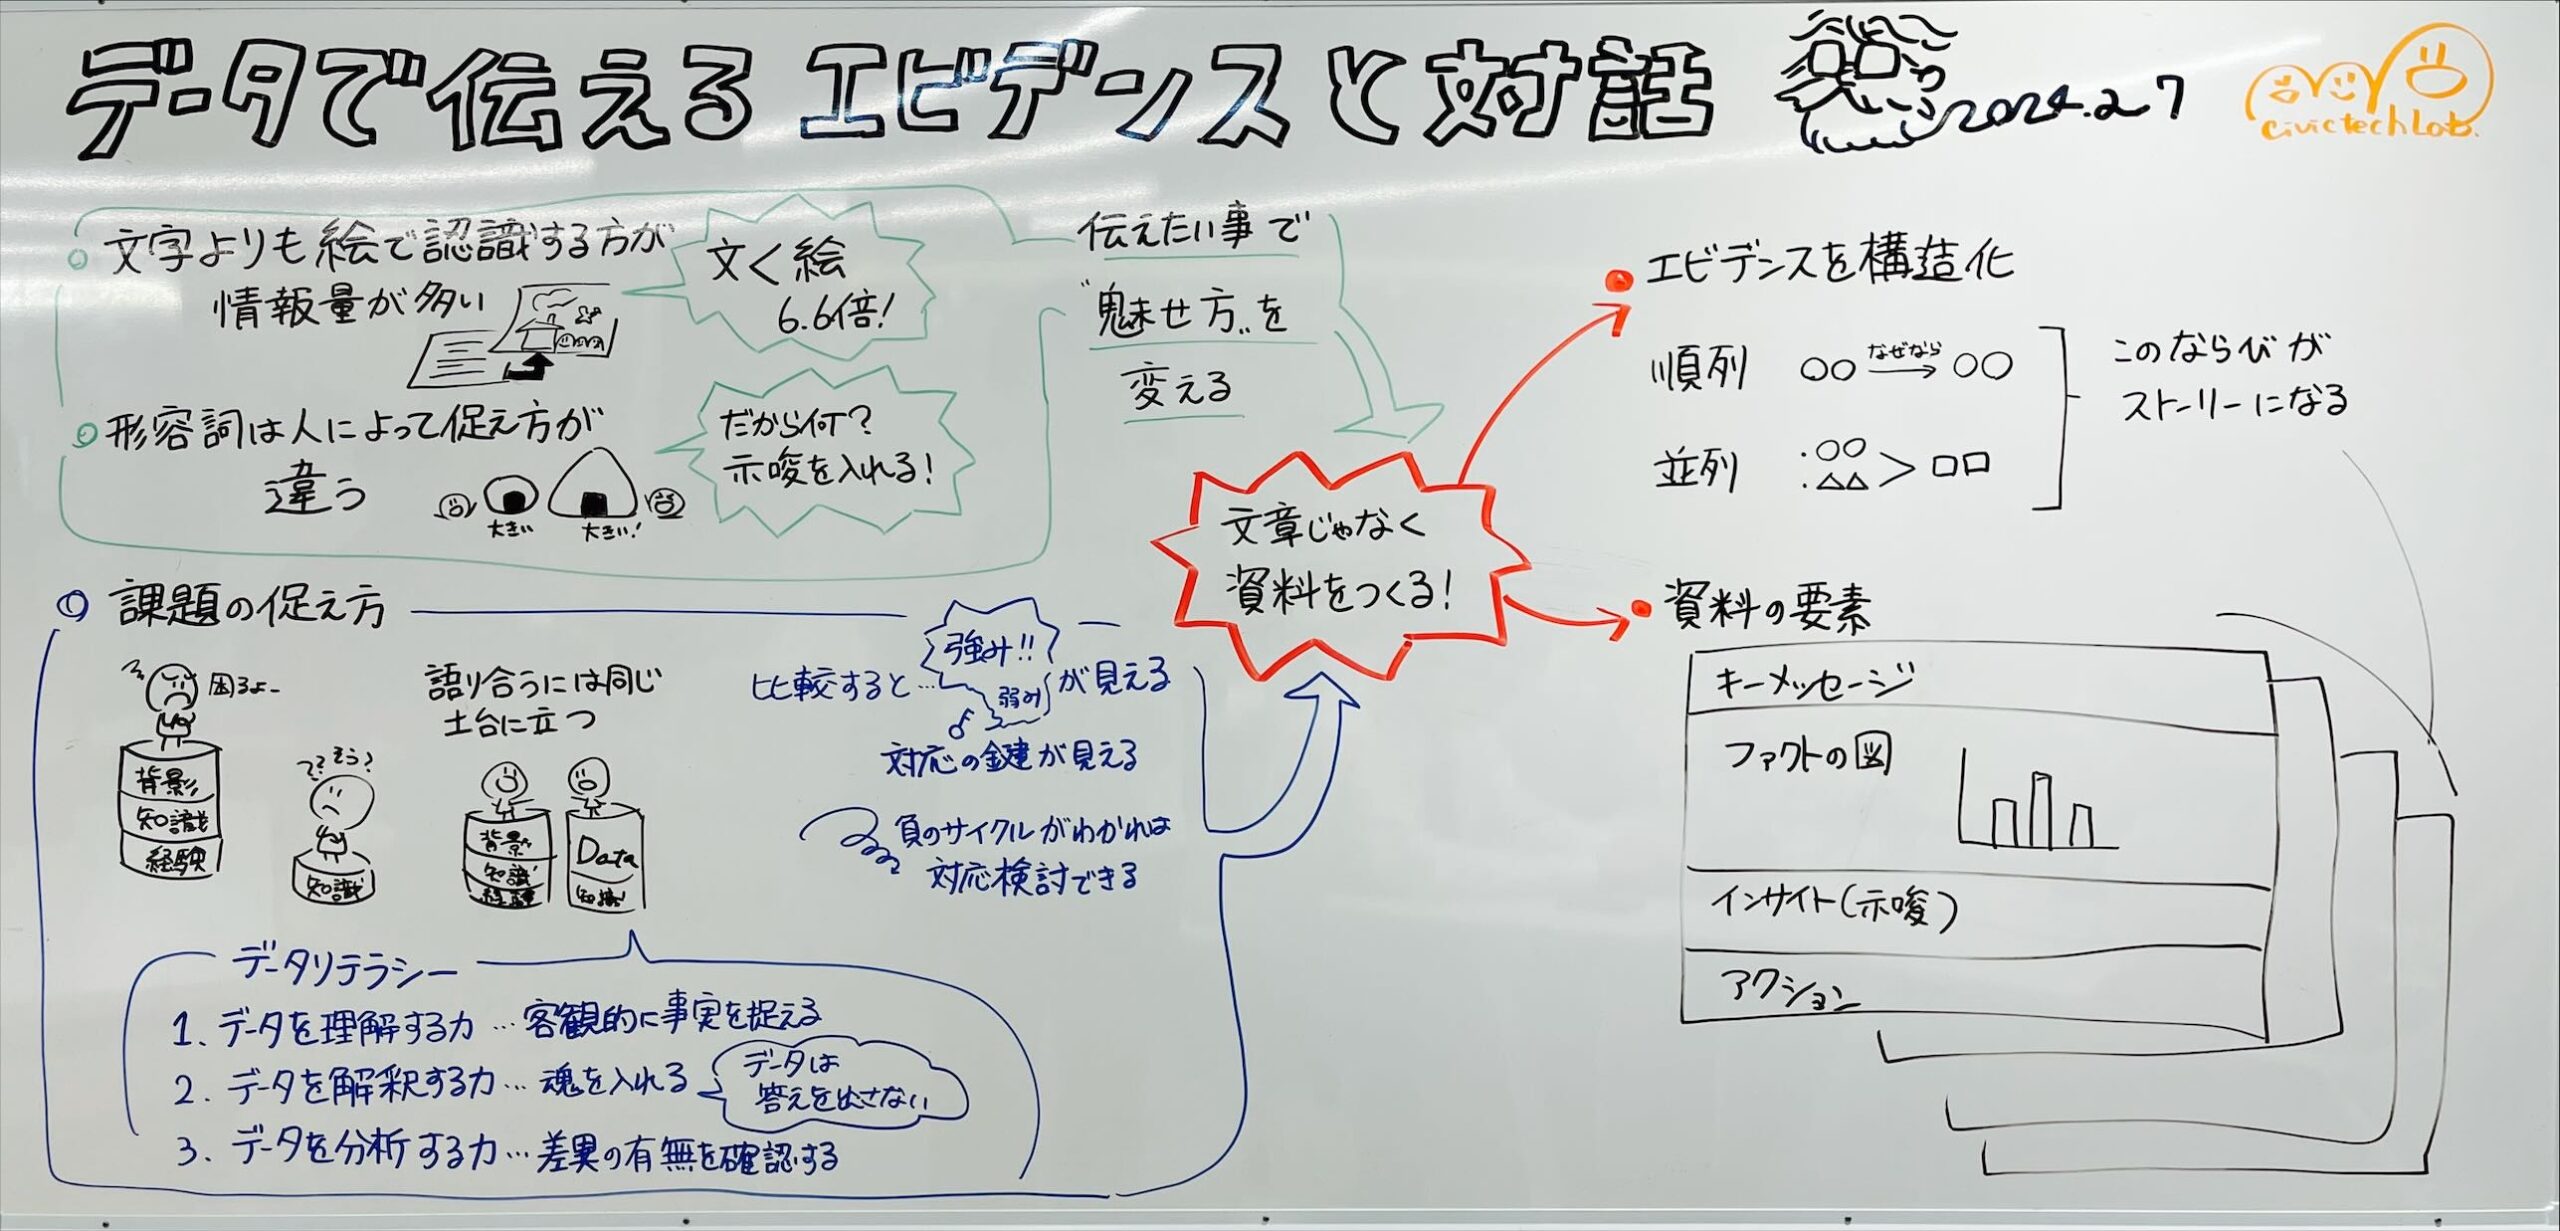 データで伝える エビデンスと対話
2024.2.27
civictech Lab.
文字よりも絵で認識する方が
情報量が多い
文く絵
6.6倍!
形容詞は人によって促え方が
違う
大きい
大きい!
だから何?
示唆を入れる!
伝えたい事で
"魅せ方"を
変える
課題の促え方
困るよー
背景
知識
経験
?? そう?
知識
語り合うには同じ
土台に立つ
背景
知識
経験
Data
知識
比較すると…
強み!!
弱み
が見える
対応の鍵が見える
負のサイクルがわかれば
対応検討できる
データリテラシー
1. データを理解する力…客観的に事実を捉える
2. データを解釈する力…魂を入れる
データは
答えを出さない
3. データを分析する力…差異の有無を確認する
文章じゃなく
資料をつくる!
エビデンスを構造化
順列 ○○ なぜなら → ○○
並列 ・○○
・△△ > □□
このならびが
ストーリーになる
資料の要素
キーメッセージ
ファクトの図
インサイト(示唆)
アクション